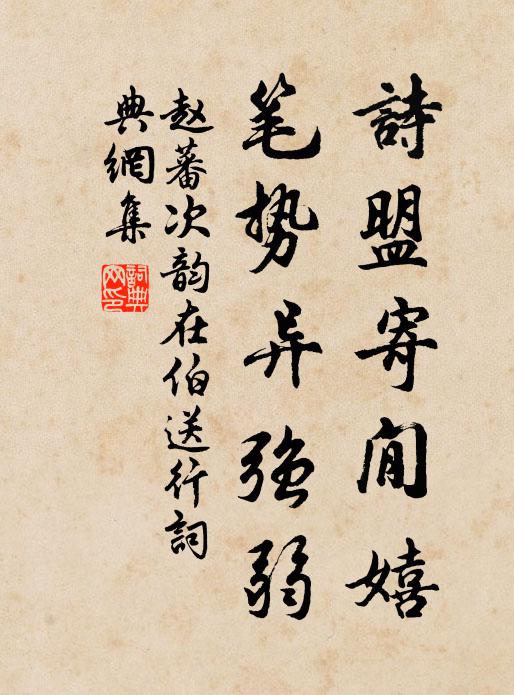 詩盟寄閒嬉
笔势异強弱
赵蕃次韵在伯送行詞
典網集
詞典網印